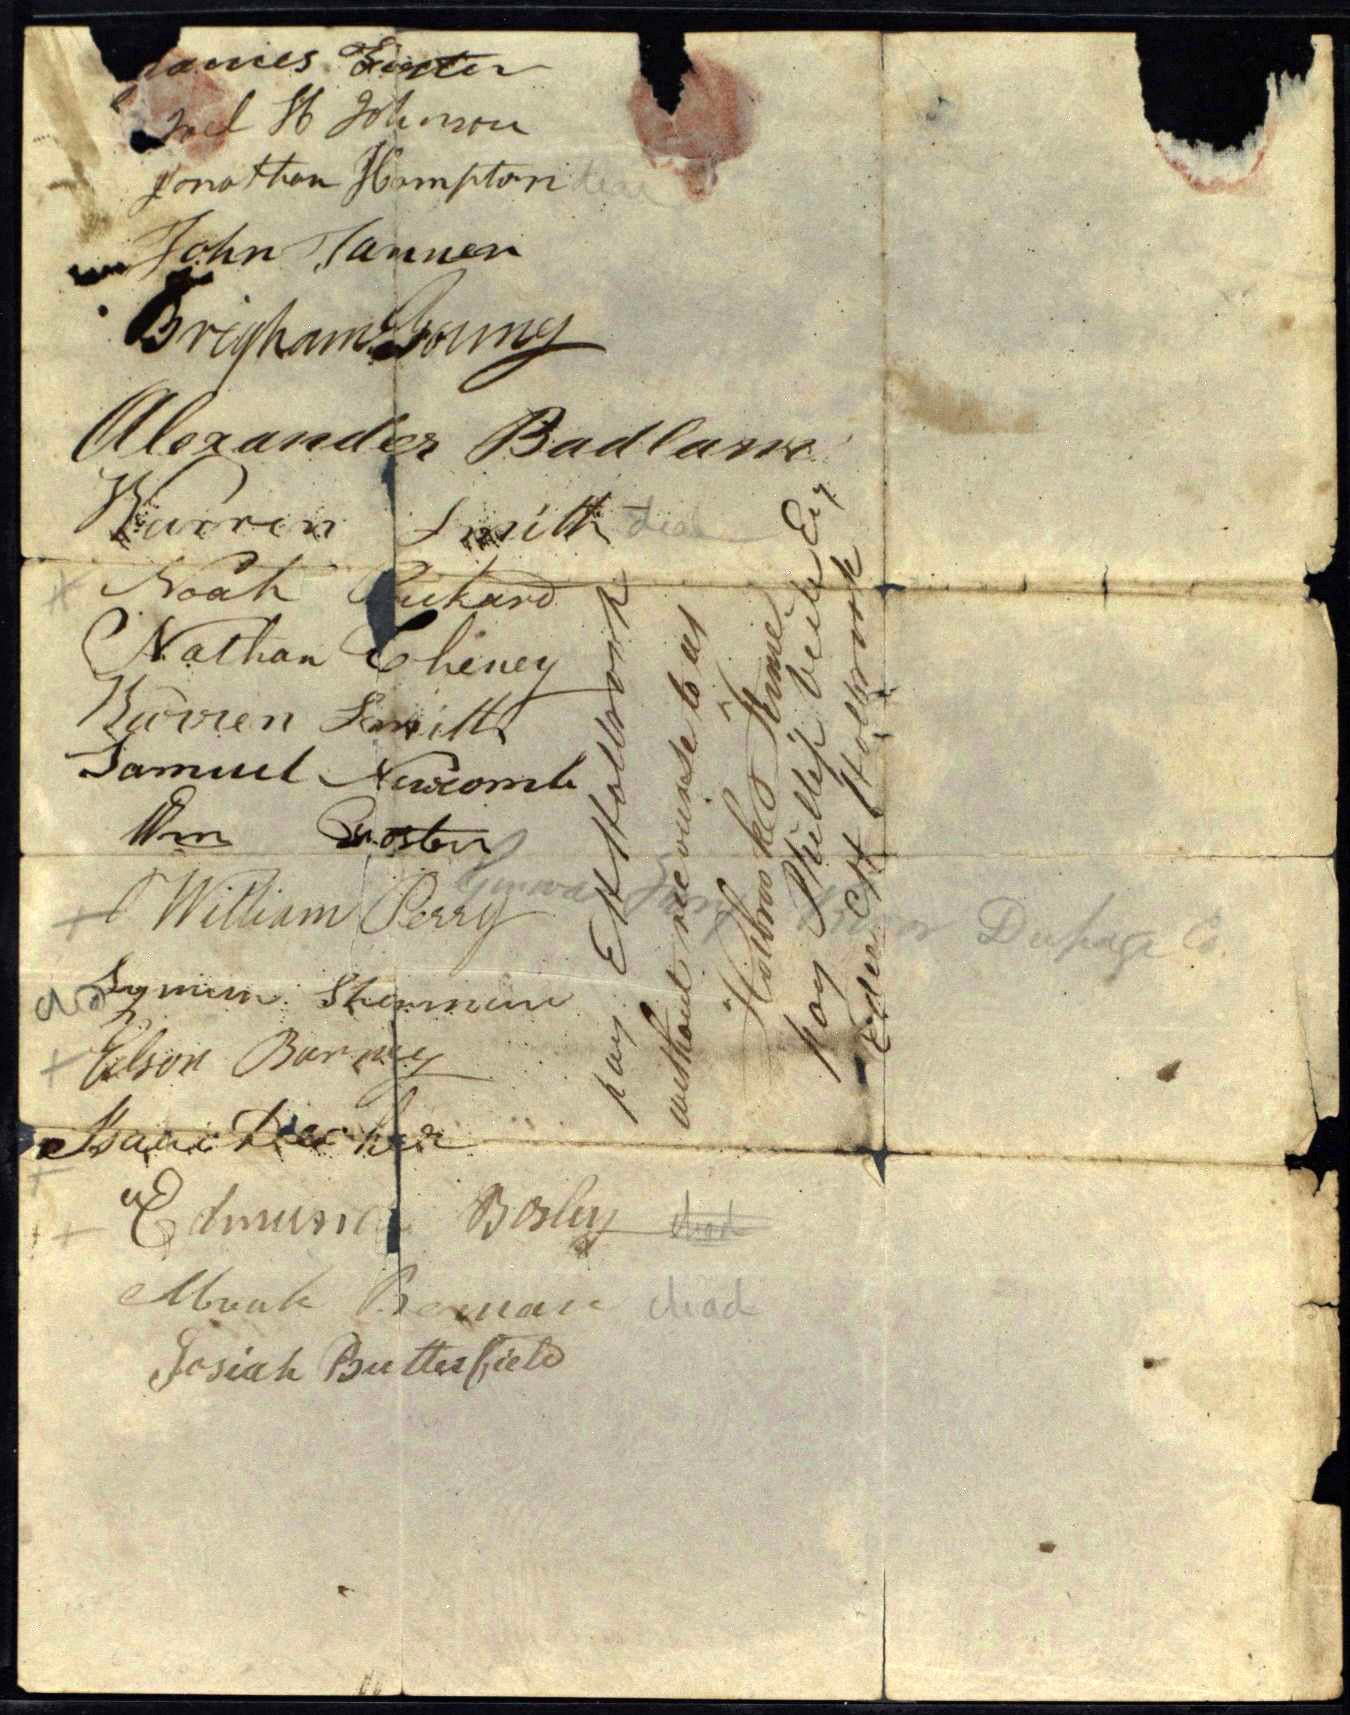 James Foster
Joel H Johnson
Jonathan Hampton dead
John Tanner
Brigham Young
Alexander Badlam
Warren Smith dead
Noah Packard
Nathan Cheney
Warren Smith
Samuel Newcomb
Wm Foster
William Perry
dead Lyman Sherman
Edson Barney
Isaac Decker
Edmund Bosley dead
Alvah Beman dead
Josiah Butterfield
pay E H Holbrook
without recourse to us
Holbrook &
pay Phillip Esq
Eden H Holbrook
Dupage Co.